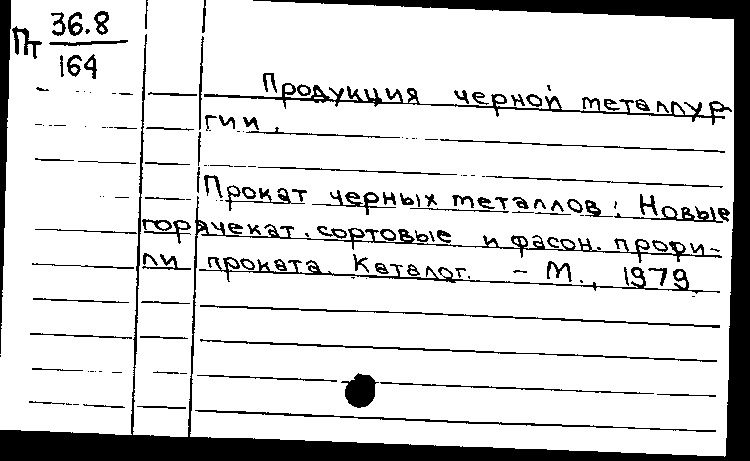 Пт 36.8
164
Продукция черной металлур-
гии.
Прокат черных металлов: Новые
горячекат. сортовые и фасон. профи-
ли проката. Каталог. - М., 1979.